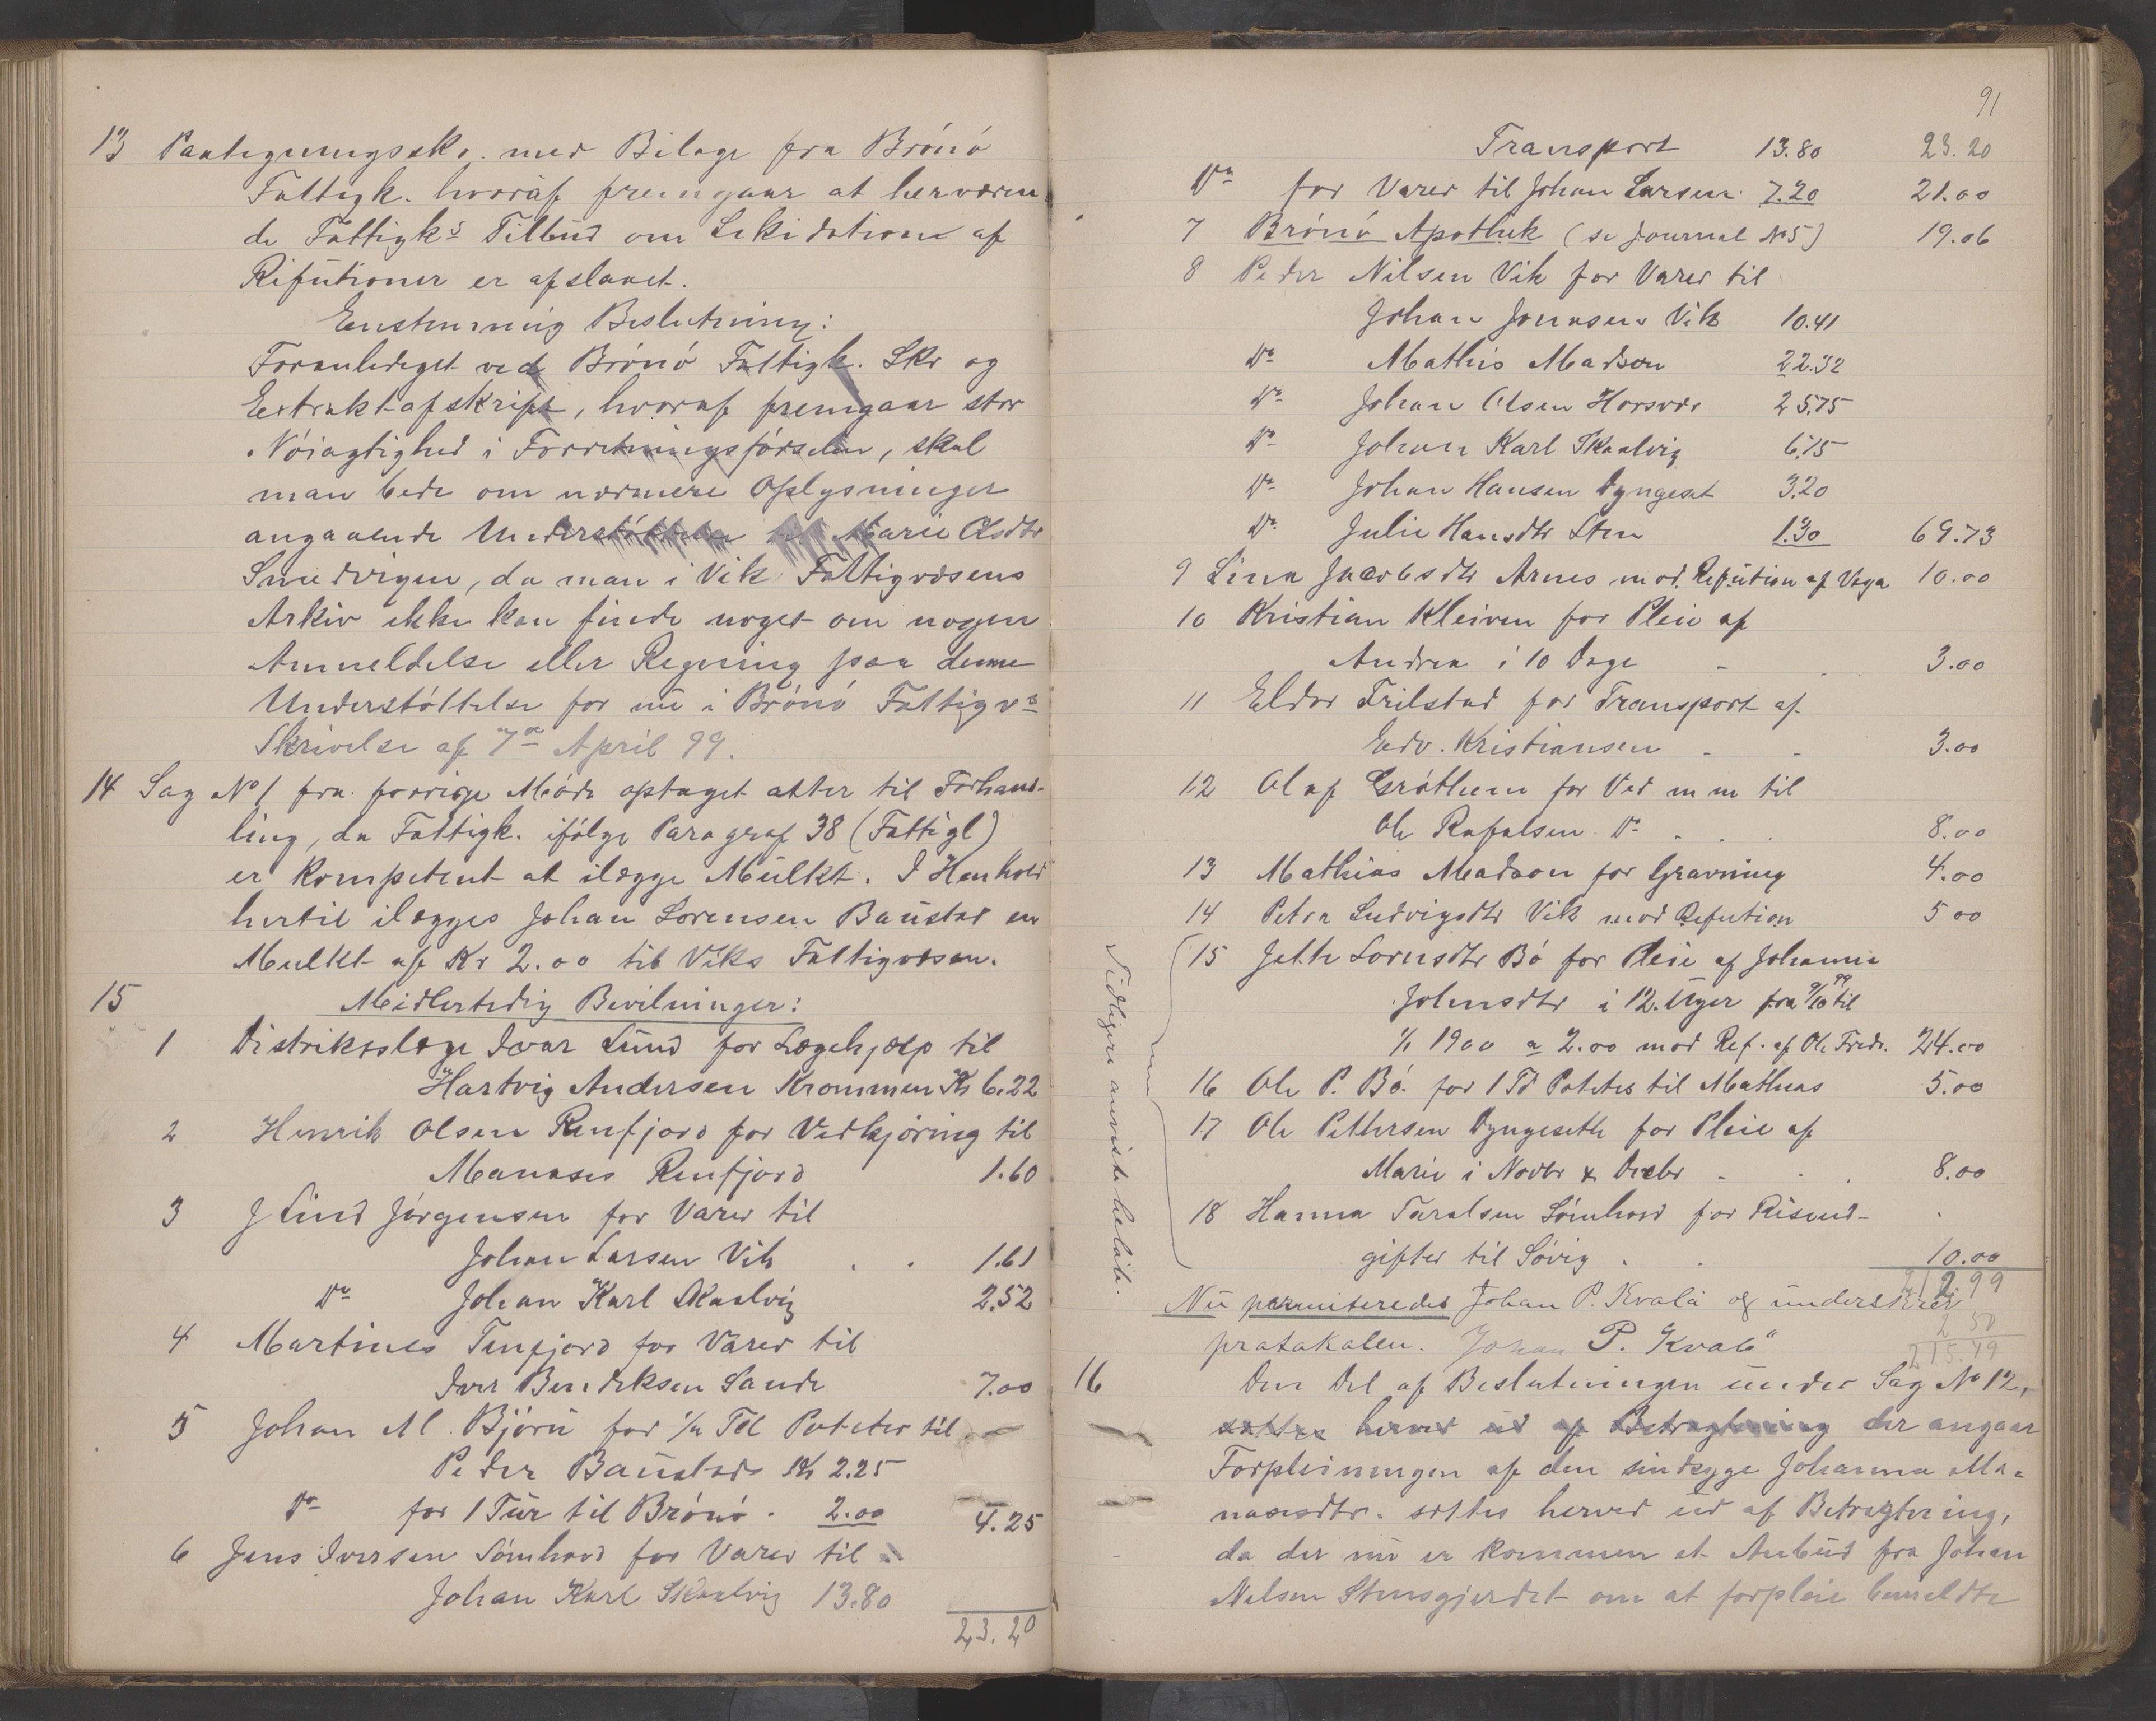 13 Paategningssk. med Bilage fra Brönö
Fattigk. hvoraf fremgaar at herværen
de Fattigks Tilbud om Lekidation af
Refutioner er afslaaet.
Enstemmig Beslutning:
Foranlediget ved Brönö Fattigk. Skr og
Extraktafskrift, hvoraf fremgaar stor
Nöiagtighed i Forretningsförselen, skal
man bede om nærmere Oplysninger
angaaende Understöttelse til Marie Olsdtr
Smedvigen, da man i Vik Fattigvæsens
Arkiv ikke kan finde noget om nogen
Anmeldelse eller Regning paa denne
Understöttelse för nu i Brönö Fattigvs
Skrivelse af 7de April 99.
14 Sag No 1 fra forrige Möde optaget atter til Forhand-
ling, da Fattigk. ifölge Paragraf 38 (Fattigl)
er kompetent at ilægge Mülkt. I Henhold
hertil ilægges Johan Sorensen Baustad en
Mulkt af Kr 2.00 til Viks Fattigvæsen.
15 Midlertidig Bevilninger:
1 Distrikslæge Ivar Lund for Lægehjælp til
Hartvig Andersen Krommen Kr 6.22
2 Henrik Olsen Renfjord for Vedkjöring til
Manases Renfjord 1.60
3 J Lind Jörgensen for Varer til
Johan Larsen Vik 1.61
Do Johan Karl Skaalvig 2.52
4 Martines Tenfjord for Varer til
Iver Bendeksen Sande 7.00
5 Johan M. Björu for 1/2 Td Poteter til
Peder Baustad Kr 2.25
Do for 1 Tur til Brönö . 2.00 4.25
6 Jens Iversen Sömhovd for Varer til
Johan Karl Skaalvig 13.80
23.20
91
Transport 13.80 23.20
Do for Varer til Johan Larsen 7.20 21.00
7 Brönö Apothek (se Journal No 5) 19.06
8 Peder Nilsen Vik for Varer til
Johan Jonasen Vik 10.41
Do Mathis Madsen 22.32
Do Johan Olsen Horsvær 25.75
Do Johan Karl Skaalvig 6.75
Do Johan Hansen Dyngeset 3.20
Do Julie Hansdtr Sten 1.30 69.73
9 Lina Jacobsdtr Arnes mod Refution af Vega 10.00
10 Kristian Kleiven for Pleie af
Andrea i 10 Dage - 3.00
11 Eldor Trilstad for Transport af
Edv. Kristiansen - - 3.00
12 Olaf Gröthem for Ved m m til
Ole Rafaelsen Do . . . 8.00
13 Mathias Madsen for Gravning 4.00
14 Petra Ludvigsdtr Vik mod Refution 5 00
15 Jette Lornsdtr Bö for Pleie af Johanna
Johnsdtr i 12 Uger fra 9/10 99 til
1/1 1900 a 2.00 mod Ref. af Ole Fredr. 24.00
16 Ole P. Bö for 1 Td Potetes til Mathias 5.00
17 Ole Pettersen Dyngeseth for Pleie af
Marie i Novbr & Decbr - . . 8.00
18 Hanna Taralsen Sömhovd for Reiseud-
gifter til Sövig . . 10.00
Tidligere anviste beløb.
212.99
Nu permiteredes Johan P. Kvalö og underskrev
2 50
pratakalen. Johan P. Kvalö
215.49
16 Den Del af Beslutningen under Sag No 12,
sættes herved ud af Betragtning der angaar
Forpleiningen af den sindsyge Johanna Ma-
nasesdtr. sættes herved ud af Betragtning,
da der nu er kommen et Anbud fra Johan
Nelsen Stensgjerdet om at forpleie bemeldte